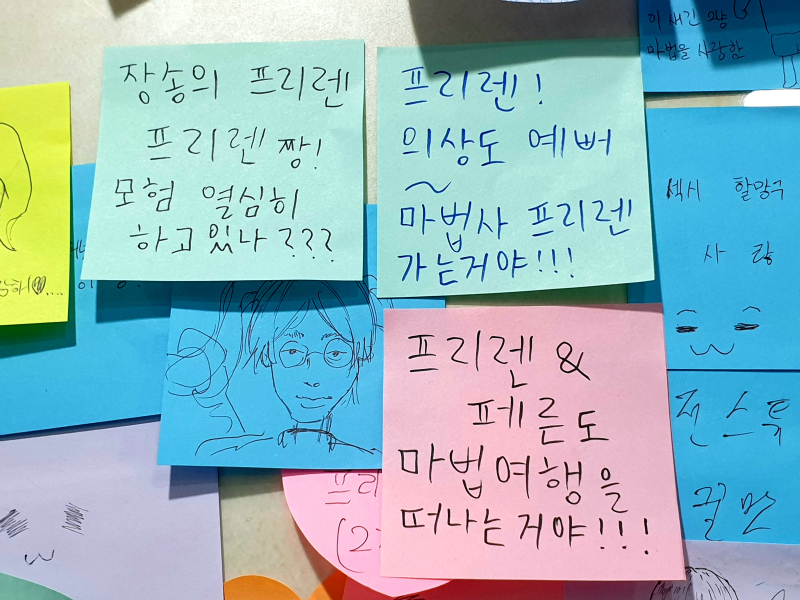 장송의 프리렌
프리렌 짱!
모험 열심히
하고 있나???
프리렌!
의상도 예뻐
~
마법사 프리렌
가는거야!!!
프리렌 &
페른도
마법여행을
떠나는거야!!!
이 새긴
마법을 사랑함
섹시 할망구
사랑
전스톡
프리